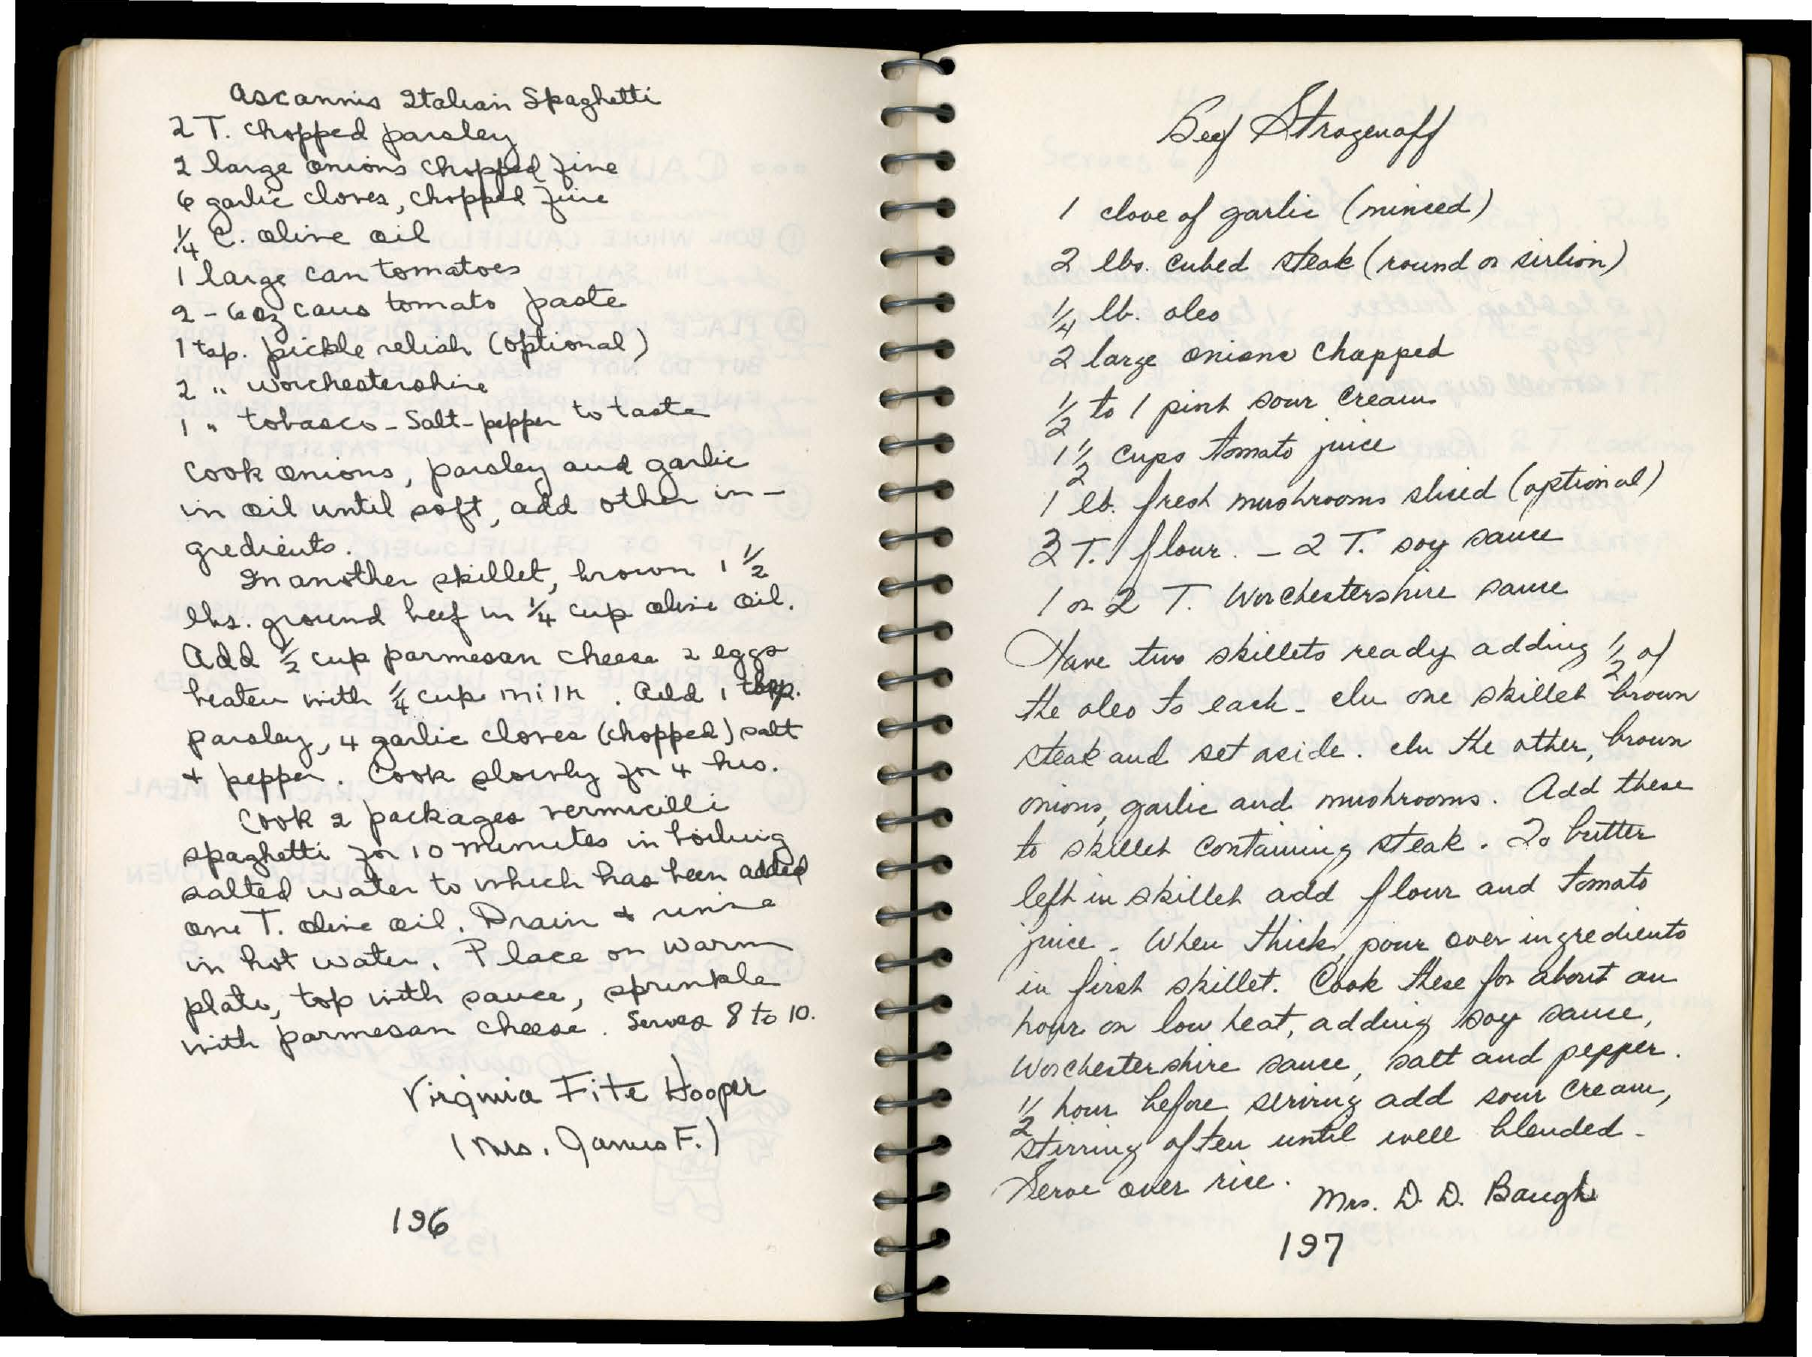 Ascannis Italian Spaghetti
2 T. chopped parsley
2 large onions chopped fine
6 garlic cloves, chopped fine
1/4 C. olive oil
1 large can tomatoes
2 - 6 oz cans tomato paste
1 tsp. pickle relish (optional)
2 " worchestershire
1 " tobasco - Salt - pepper to taste
Cook onions, parsley and garlic
in oil until soft, add other in-
gredients.
In another skillet, brown 1 1/2
lbs. ground beef in 1/4 cup olive oil.
Add 1/2 cup parmesan cheese 2 eggs
beaten with 1/4 cup milk. Add 1 tbsp.
parsley, 4 garlic cloves (chopped) salt
+ pepper. Cook slowly for 4 hrs.
Cook 2 packages vermicilli
spaghetti for 10 minutes in boiling
salted water to which has been added
one T. olive oil. Drain + rinse
in hot water. Place on warm
plate, top with sauce, sprinkle
with parmesan cheese. Serves 8 to 10.
Virginia Fite Hooper
(Mrs. James F.)
196
Beef Strogenoff
1 clove of garlic (minced)
2 lbs. cubed steak (round or sirlion)
1/4 lb. oleo
2 large onions chopped
1/2 to 1 pint sour cream
1 1/2 cups tomato juice
1 lb. fresh mushrooms sliced (optional)
3 T. flour. - 2 T. soy sauce
1 or 2 T. Worchestershire sauce
Have two skillets ready adding 1/2 of
the oleo to each. In one skillet brown
steak and set aside. In the other, brown
onions, garlic and mushrooms. Add these
to skillet containing steak. To butter
left in skillet add flour and tomato
juice. When thick, pour over ingredients
in first skillet. Cook these for about an
hour on low heat, adding soy sauce,
Worchestershire sauce, salt and pepper.
1/2 hour before serving add sour cream,
stirring often until well blended.
Serve over rice. Mrs. D. D. Baugh
197